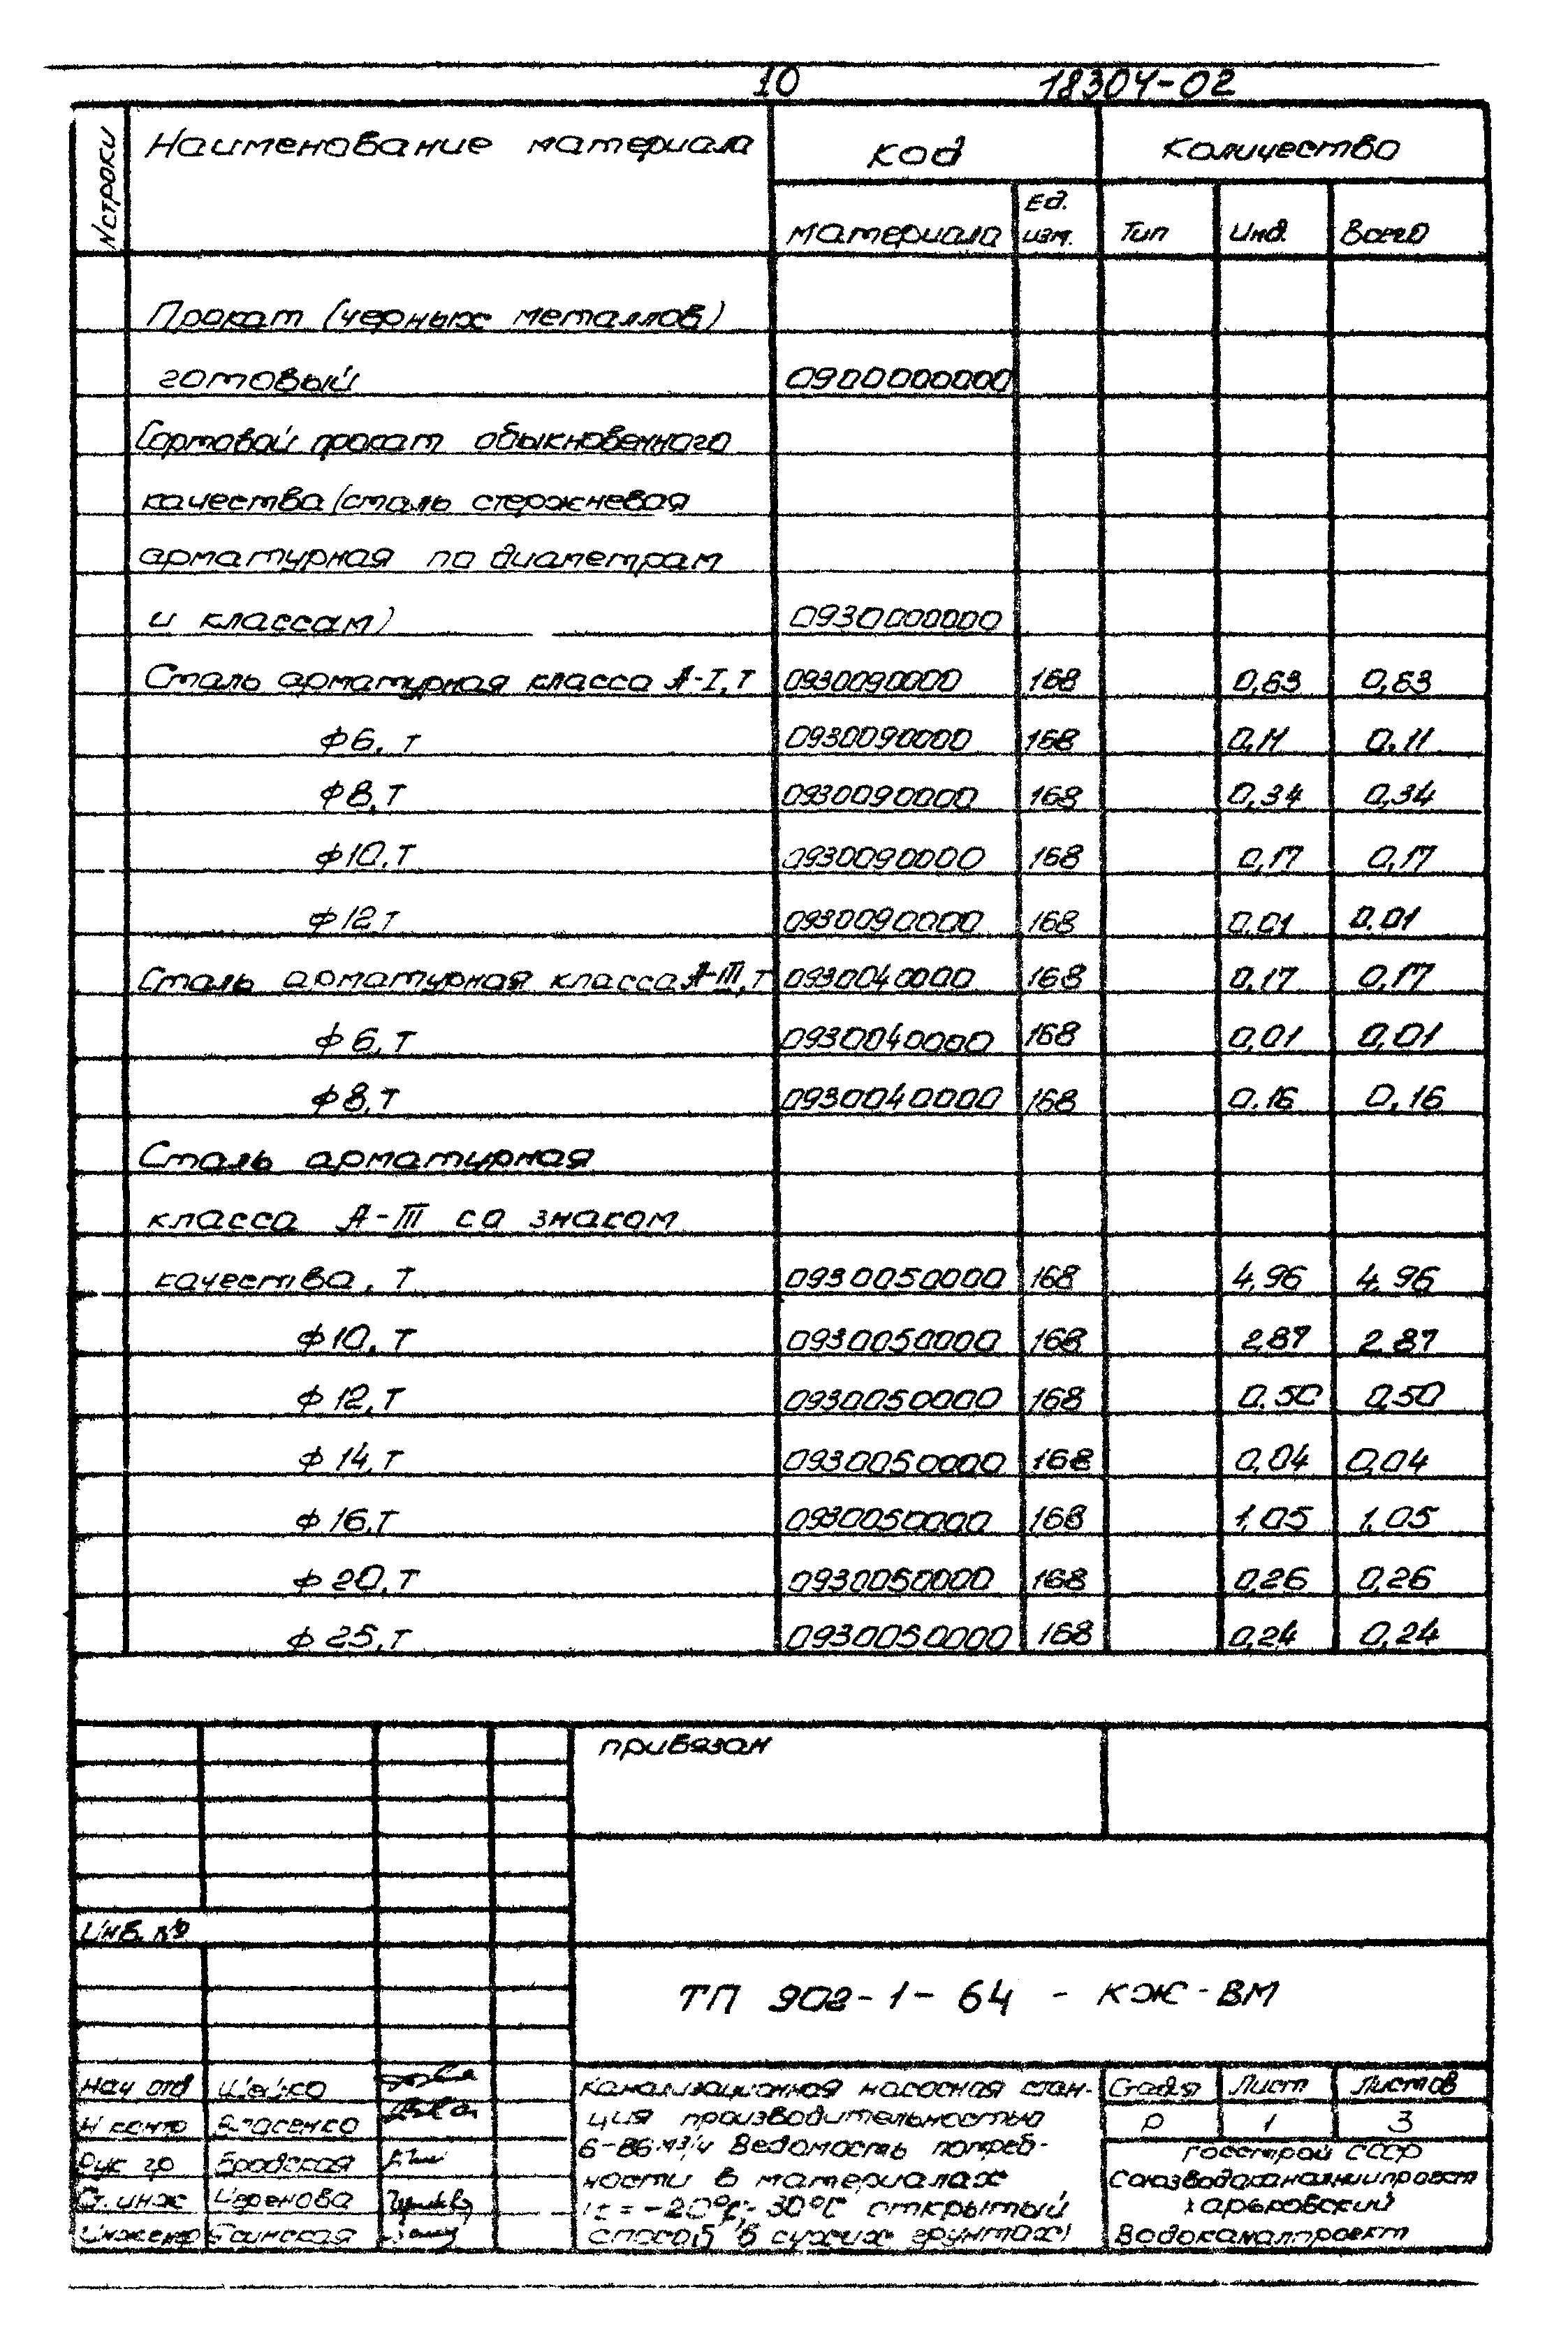 10 18304-02
N строки Наименование материала Код Количество
материала Ед. изм. Тип Инд. Всего
Прокат (черных металлов)
готовый 0900000000
Сортовой прокат обыкновенного
качества (сталь стержневая
арматурная по диаметрам
и классам) 0930000000
Сталь арматурная класса А-I, т 0930090000 168 0,63 0,63
ф6, т 0930090000 168 0,11 0,11
ф8, т 0930090000 168 0,34 0,34
ф10, т 0930090000 168 0,17 0,17
ф12, т 0930090000 168 0,01 0,01
Сталь арматурная класса А-III, т 0930040000 168 0,17 0,17
ф6, т 0930040000 168 0,01 0,01
ф8, т 0930040000 168 0,16 0,16
Сталь арматурная
класса А-III со знаком
качества, т 0930050000 168 4,96 4,96
ф10, т 0930050000 168 2,87 2,87
ф12, т 0930050000 168 0,50 0,50
ф14, т 0930050000 168 0,04 0,04
ф16, т 0930050000 168 1,05 1,05
ф20, т 0930050000 168 0,26 0,26
ф25, т 0930050000 168 0,24 0,24
привязан
Инв. №
ТП 902-1-64 - КЖ-ВМ
Нач отд Шейко
Н контр Власенко
Рук гр Бродская
Ст. инж Черенова
Инженер
Канализационная насосная стан-
ция производительностью
6-86 м3/ч Ведомость потреб-
ности в материалах
(t=-20°С; -30°С открытый
способ в сухих грунтах)
Стадия Лист Листов
Р 1 3
Госстрой СССР
Союзводоканалниипроект
Харьковский
Водоканалпроект